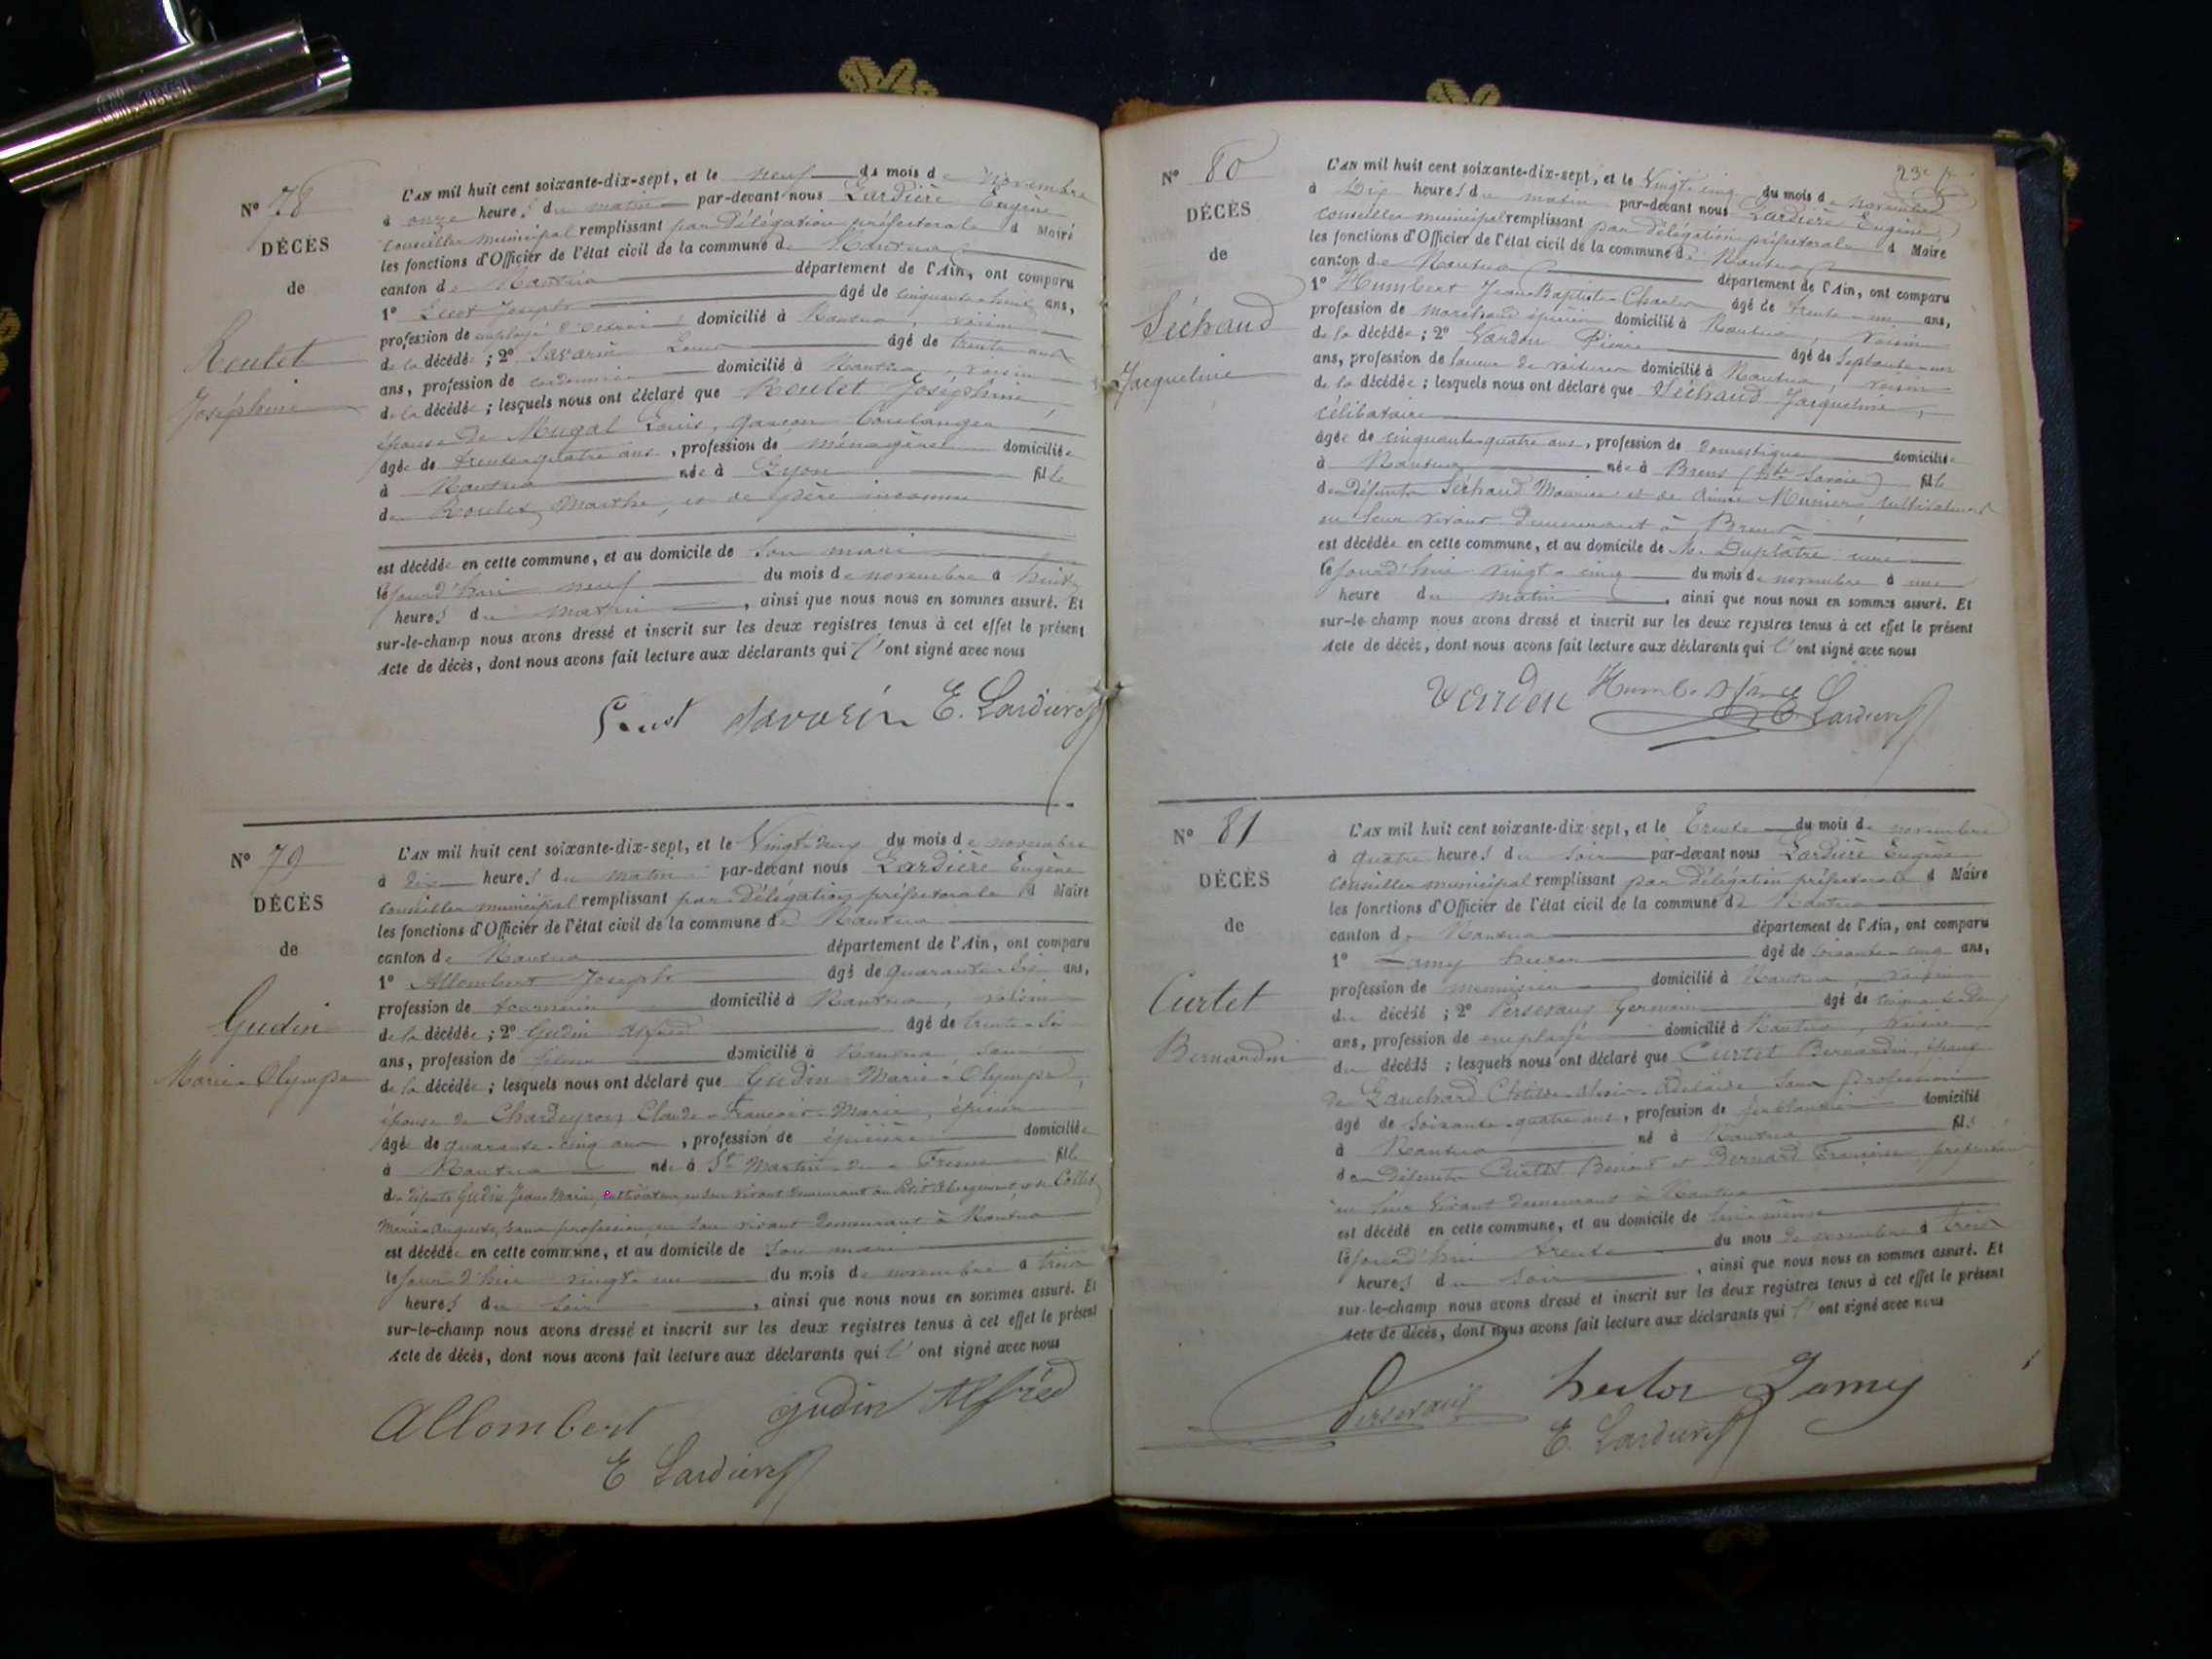 N° 78
DÉCÈS
de
Roulet
Joséphine
L'AN mil huit cent soixante-dix-sept, et le neuf du mois de novembre
à onze heures du matin par-devant nous Lardière Eugène
conseiller municipal remplissant par délégation préfectorale d Maire
les fonctions d'Officier de l'état civil de la commune de Nantua
canton de Nantua département de l'Ain, ont comparu
1° Joseph âgé de cinquante ans,
profession de employé d'octroi domicilié à Nantua, voisin
de la décédée ; 2° Savarin Louis âgé de trente
ans, profession de cordonnier domicilié à Nantua, voisin
de la décédée ; lesquels nous ont déclaré que Roulet Joséphine,
épouse de Mugal Louis, garçon boulanger
âgée de trente-quatre ans, profession de ménagère domiciliée
à Nantua née à Lyon fille
de Roulet Marthe, et de père inconnu
est décédée en cette commune, et au domicile de son mari
le jourd'hui neuf du mois de novembre à huit
heures du matin, ainsi que nous nous en sommes assuré. Et
sur-le-champ nous avons dressé et inscrit sur les deux registres tenus à cet effet le présent
Acte de décès, dont nous avons fait lecture aux déclarants qui l'ont signé avec nous
Savarin E. Lardière
N° 79
DÉCÈS
de
Gudin
Marie-Olympe
L'AN mil huit cent soixante-dix-sept, et le Vingt-deux du mois de novembre
à dix heures du matin par-devant nous Lardière Eugène
conseiller municipal remplissant par délégation préfectorale d Maire
les fonctions d'Officier de l'état civil de la commune de Nantua
canton de Nantua département de l'Ain, ont comparu
1° Allombert Joseph âgé de quarante-six ans,
profession de tourneur domicilié à Nantua, voisin
de la décédée ; 2° Gudin Alfred âgé de trente-six
ans, profession de domicilié à Nantua,
de la décédée ; lesquels nous ont déclaré que Gudin Marie-Olympe,
épouse de Chardeyron Claude-François-Marie, épicier
âgée de quarante-cinq ans, profession de épicière domiciliée
à Nantua née à St Martin-du-Fresne fille
de défunts Gudin Jean-Marie, cultivateur, en son vivant demeurant au Petit Abergement et de Collet
Marie-Auguste, sans profession, en son vivant demeurant à Nantua
est décédée en cette commune, et au domicile de son mari
le jour d'hier vingt-un du mois de novembre à trois
heures du soir, ainsi que nous nous en sommes assuré. Et
sur-le-champ nous avons dressé et inscrit sur les deux registres tenus à cet effet le présent
Acte de décès, dont nous avons fait lecture aux déclarants qui l'ont signé avec nous
Allombert gudin Alfred
E Lardière
23e f
N° 80
DÉCÈS
de
Séchaud
Jacqueline
L'AN mil huit cent soixante-dix-sept, et le Vingt-cinq du mois de novembre
à dix heures du matin par-devant nous Lardière Eugène,
conseiller municipal remplissant par délégation préfectorale d Maire
les fonctions d'Officier de l'état civil de la commune de Nantua
canton de Nantua département de l'Ain, ont comparu
1° Humbert Jean-Baptiste-Charles âgé de trente-un ans,
profession de marchand épicier domicilié à Nantua, voisin
de la décédée ; 2° Vardon Pierre âgé de septante-un
ans, profession de loueur de voitures domicilié à Nantua, voisin
de la décédée ; lesquels nous ont déclaré que Séchaud Jacqueline,
célibataire
âgée de cinquante-quatre ans, profession de domestique domiciliée
à Nantua née à Brens (Hte Savoie) fille
de défunts Séchaud Maurice et de Munier cultivateurs
en leur vivant demeurant à Brens
est décédée en cette commune, et au domicile de M. Duplâtre curé
le jourd'hui vingt-cinq du mois de novembre à une
heure du matin, ainsi que nous nous en sommes assuré. Et
sur-le-champ nous avons dressé et inscrit sur les deux registres tenus à cet effet le présent
Acte de décès, dont nous avons fait lecture aux déclarants qui l'ont signé avec nous
Vardon Humbert E Lardière
N° 81
DÉCÈS
de
Curtet
Bernardin
L'AN mil huit cent soixante-dix-sept, et le Trente du mois de novembre
à quatre heures du soir par-devant nous Lardière Eugène
conseiller municipal remplissant par délégation préfectorale d Maire
les fonctions d'Officier de l'état civil de la commune de Nantua
canton de Nantua département de l'Ain, ont comparu
1° Lamy hector âgé de soixante-cinq ans,
profession de menuisier domicilié à Nantua, voisin
du décédé ; 2° Persevaus Germain âgé de cinquante-deux
ans, profession de employé domicilié à Nantua, voisin
du décédé ; lesquels nous ont déclaré que Curtet Bernardin, époux
de Ganchard Clotilde Adélaïde sans profession
âgé de soixante-quatre ans, profession de ferblantier domicilié
à Nantua né à Nantua fils
de défunts Curtet Benoit et Bernard Françoise, propriétaires
en leur vivant demeurant à Nantua
est décédé en cette commune, et au domicile de lui-même
le jourd'hui trente du mois de novembre à trois
heures du soir, ainsi que nous nous en sommes assuré. Et
sur-le-champ nous avons dressé et inscrit sur les deux registres tenus à cet effet le présent
Acte de décès, dont nous avons fait lecture aux déclarants qui l'ont signé avec nous
hector Lamy
E. Lardière